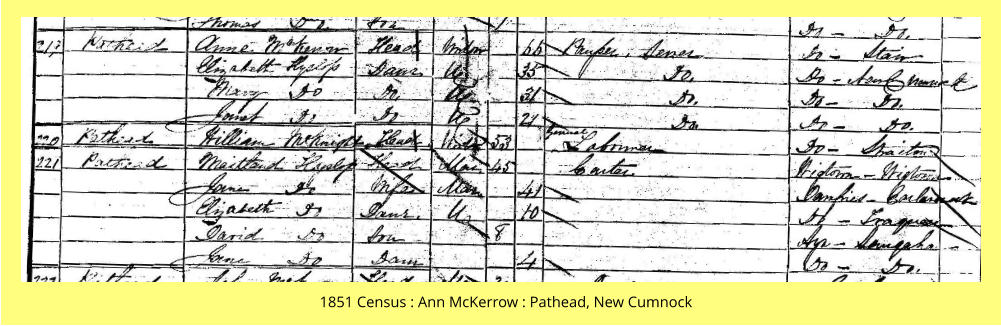 Thomas Do Son Do - Do.
Pathead Anne McKerrow Head Widow 66 Pauper, Sewer Do - Stair
Elizabeth Hyslop Daur U 35 Do. Do - New Cumnock
Mary Do Do U 31 Do. Do - Do.
Janet Do Do U 21 Do. Do - Do.
220 Pathead William McKnight Head Widr 53 General Labourer Do - Straiton
221 Pathead Maitland Hyslop Head Mar 45 Carter Wigtown - Wigtown
Jane Do Wife Mar 41 Dumfries -
Elizabeth Do Daur. U 10 Do -
David Do Son 8 Ayr -
Jane Do Daur 4 Do - Do.
Pathead
1851 Census : Ann McKerrow : Pathead, New Cumnock